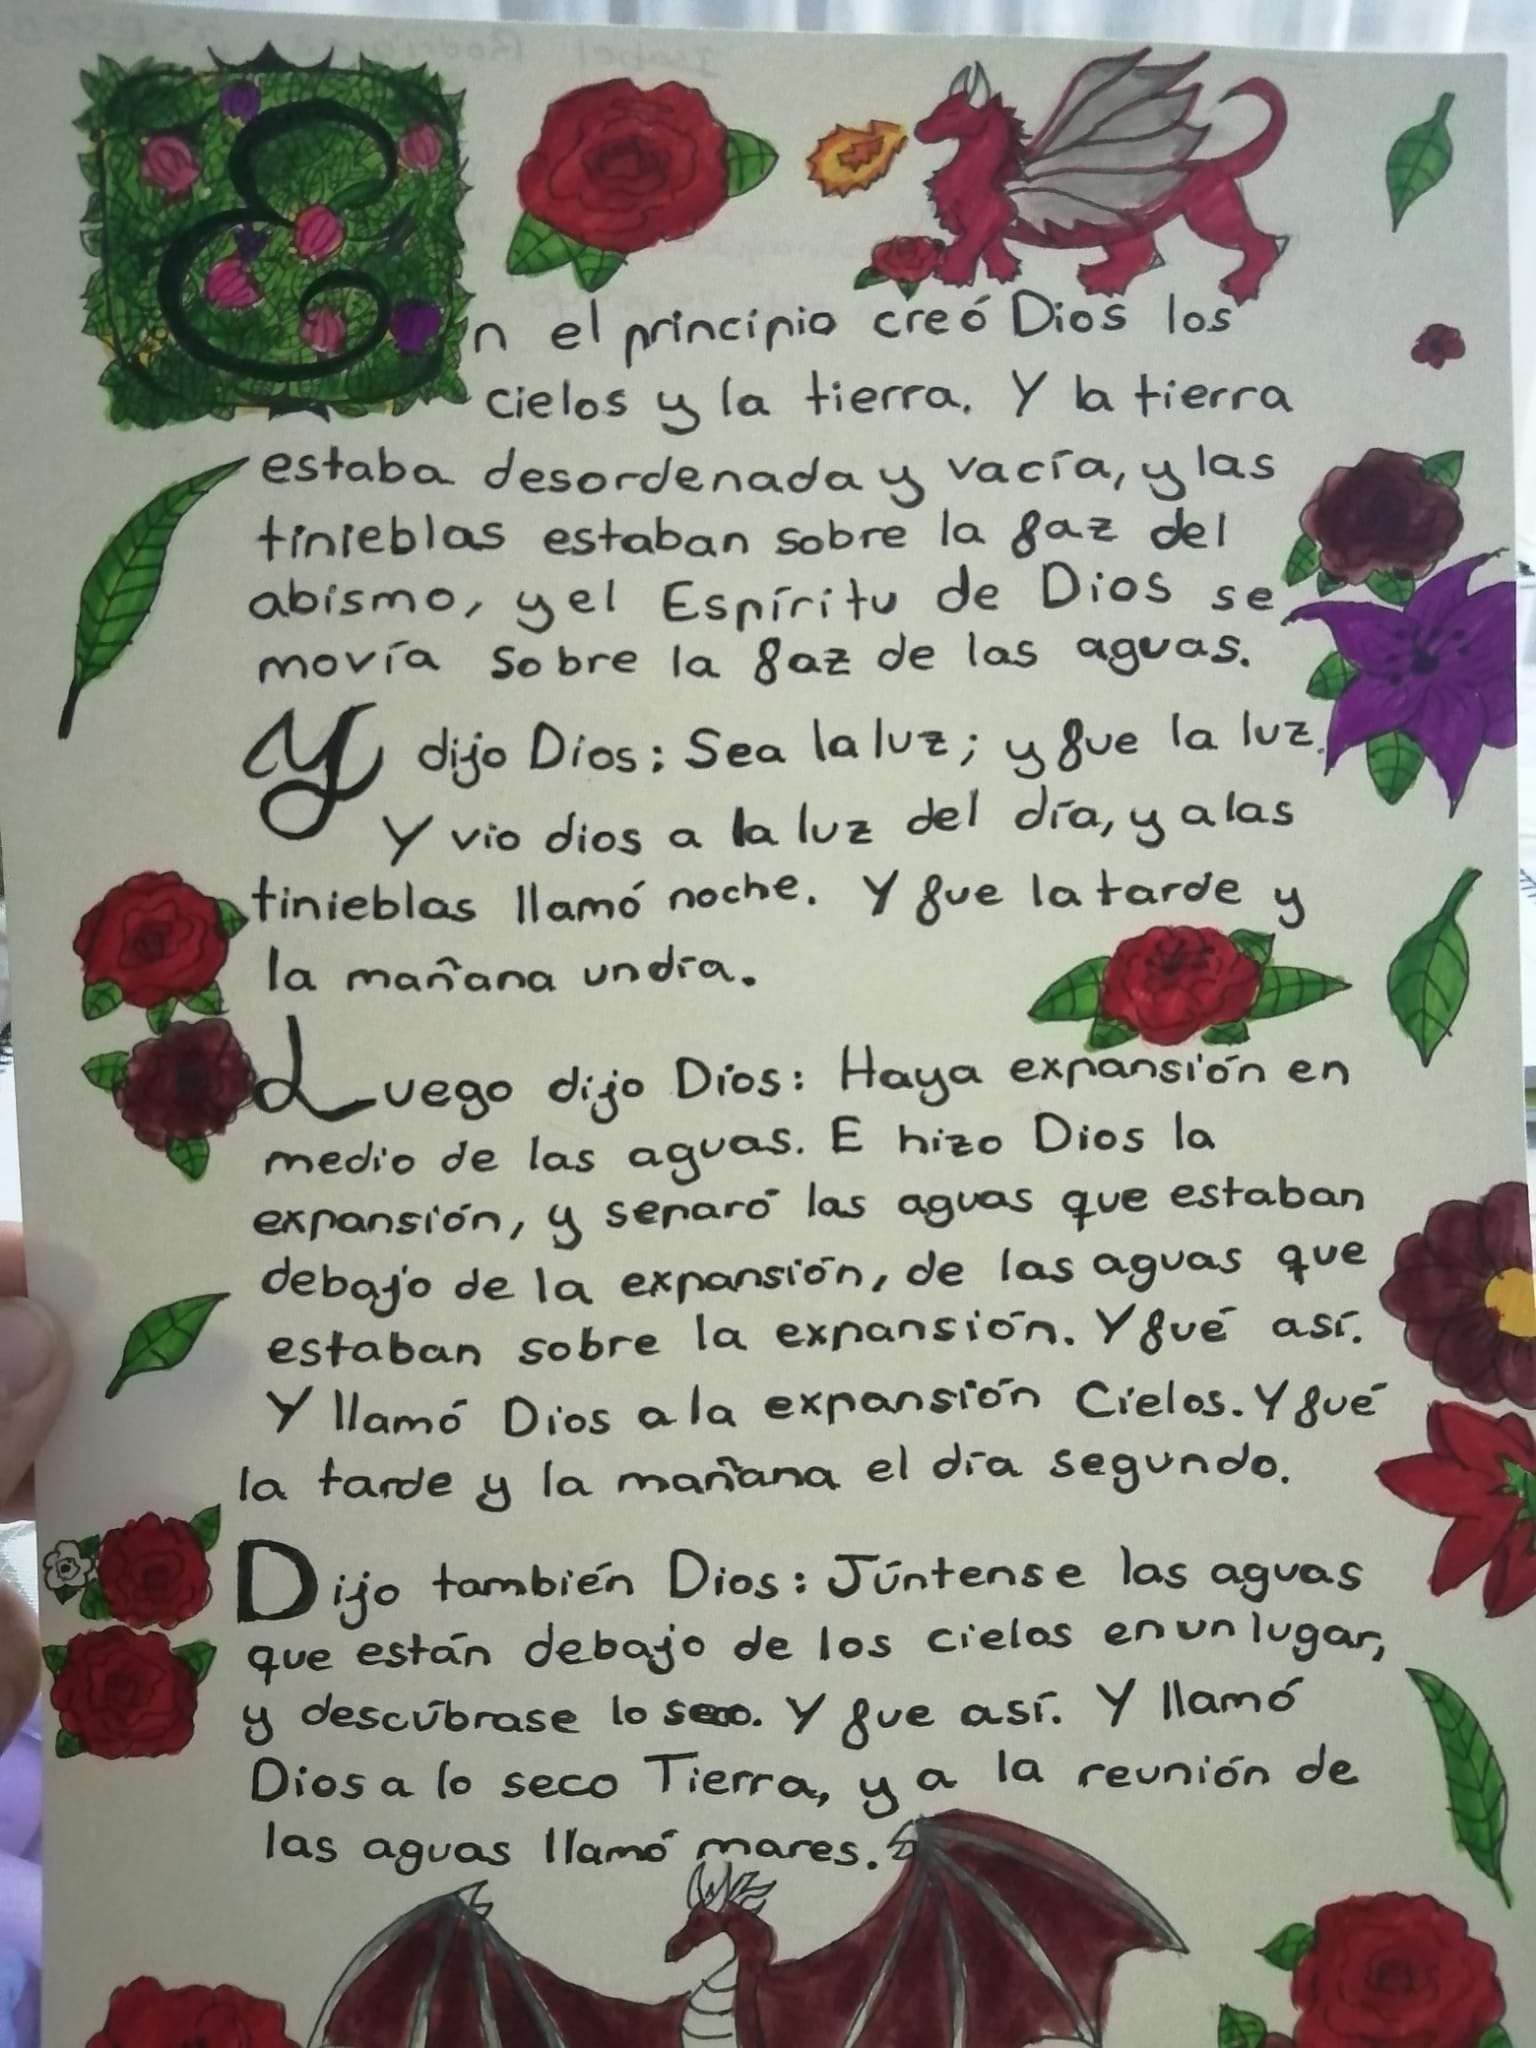 En el principio creó Dios los
cielos y la tierra. Y la tierra
estaba desordenada y vacía, y las
tinieblas estaban sobre la faz del
abismo, y el Espíritu de Dios se
movía sobre la faz de las aguas.
Y dijo Dios: Sea la luz; y fue la luz.
Y vio dios a la luz del día, y a las
tinieblas llamó noche. Y fue la tarde y
la mañana un día.
Luego dijo Dios: Haya expansión en
medio de las aguas. E hizo Dios la
expansión, y separó las aguas que estaban
debajo de la expansión, de las aguas que
estaban sobre la expansión. Y fué así.
Y llamó Dios a la expansión Cielos. Y fué
la tarde y la mañana el día segundo.
Dijo también Dios: Júntense las aguas
que están debajo de los cielos en un lugar,
y descúbrase lo seco. Y fue así. Y llamó
Dios a lo seco Tierra, y a la reunión de
las aguas llamó mares.